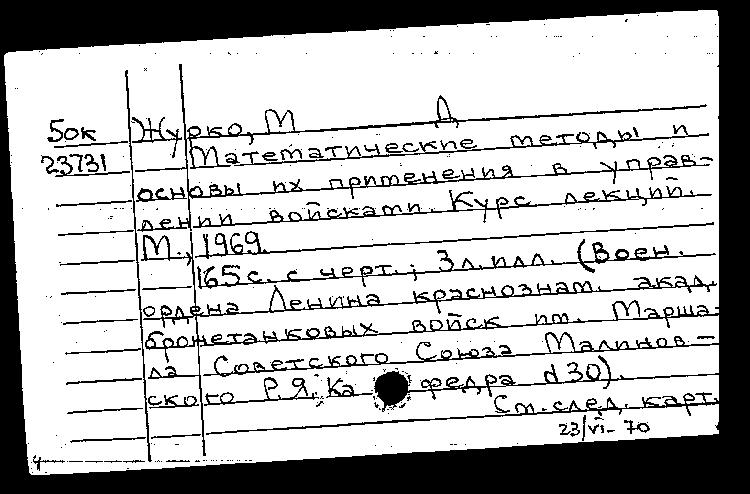 50к Журко, М Д
23731 Математические методы и
основы их применения в управ-
лении войсками. Курс лекций.
М., 1969.
165 с. с черт.; 3 л. илл. (Воен.
ордена Ленина краснознам. акад.
бронетанковых войск им. Марша-
ла Советского Союза Малинов-
ского Р.Я. Ка федра №30).
См. след. карт.
23/VI-70